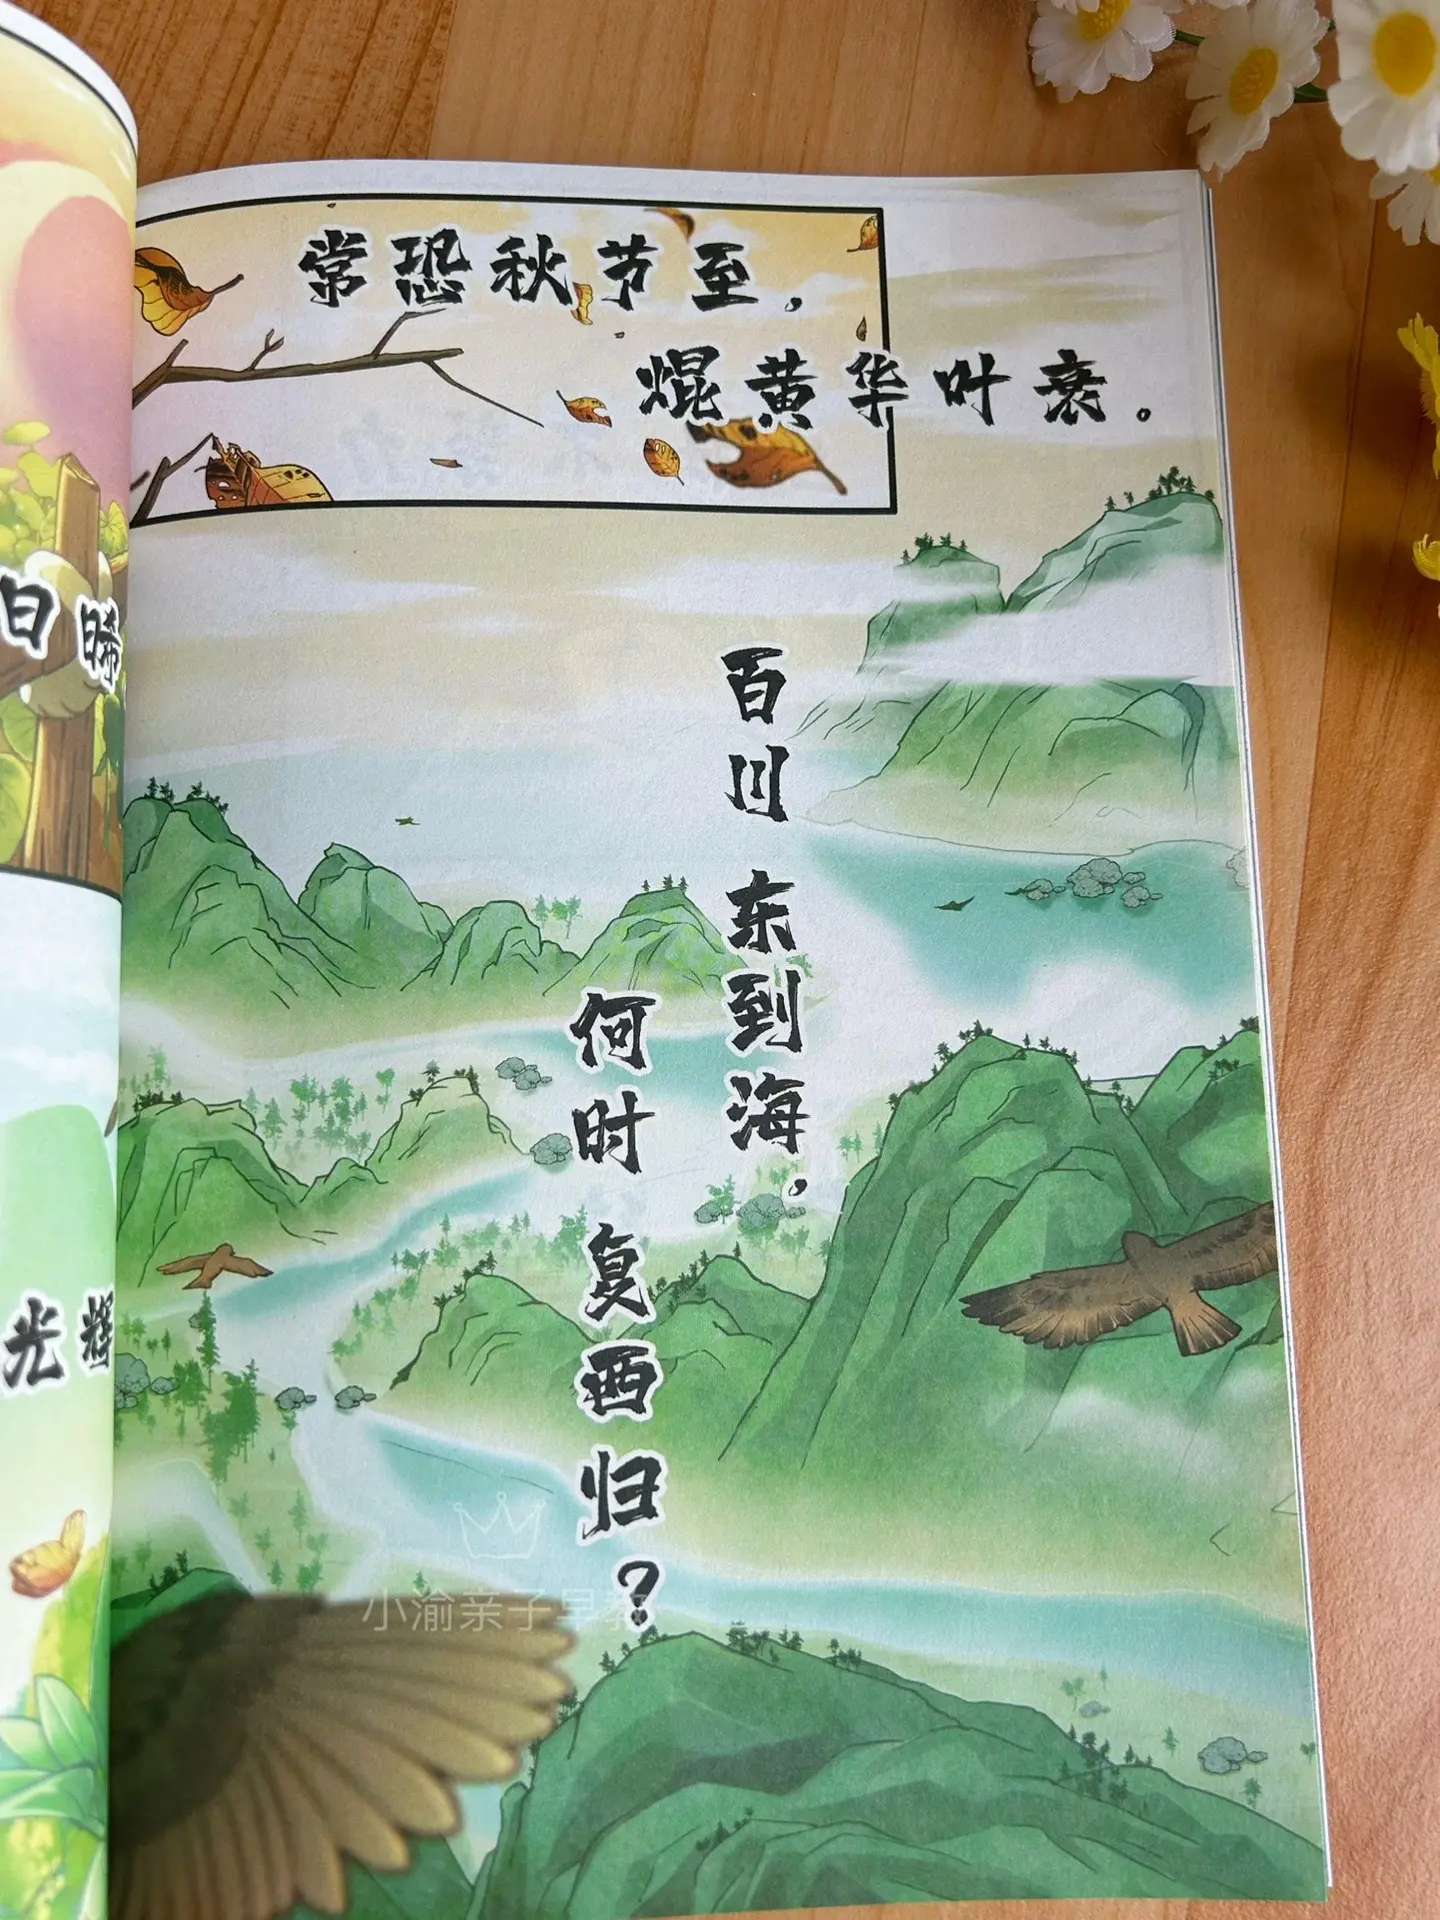 常恐秋节至，
焜黄华叶衰。
百川东到海，
何时复西归？
日晞
光辉
小渝亲子早教